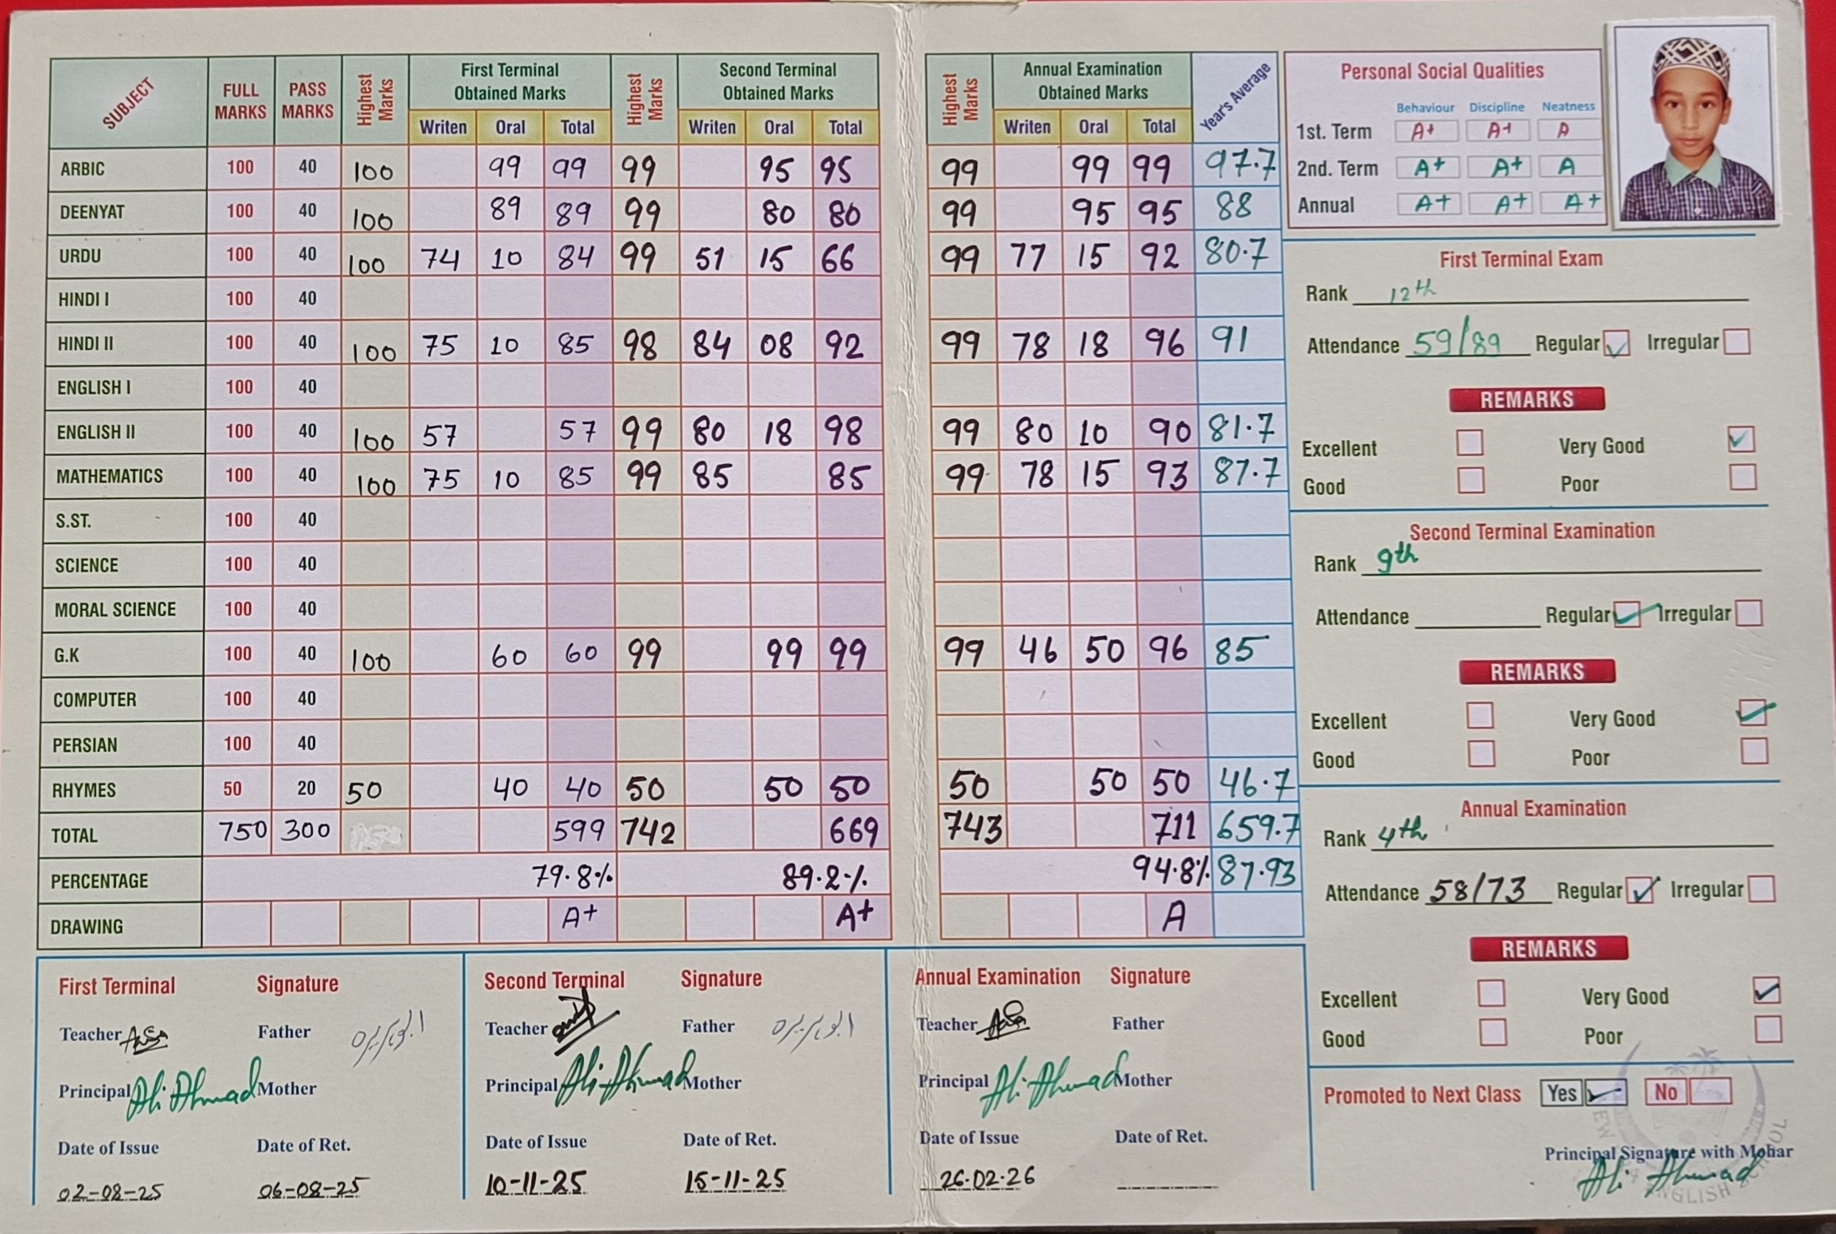 SUBJECT FULL MARKS PASS MARKS Highest Marks First Terminal Obtained Marks Highest Marks Second Terminal Obtained Marks Highest Marks Annual Examination Obtained Marks Year's Average
Writen Oral Total Writen Oral Total Writen Oral Total
ARBIC 100 40 100 99 99 99 95 95 99 99 99 97.7
DEENYAT 100 40 100 89 89 99 80 80 99 95 95 88
URDU 100 40 100 74 10 84 99 51 15 66 99 77 15 92 80.7
HINDI I 100 40
HINDI II 100 40 100 75 10 85 98 84 08 92 99 78 18 96 91
ENGLISH I 100 40
ENGLISH II 100 40 100 57 57 99 80 18 98 99 80 10 90 81.7
MATHEMATICS 100 40 100 75 10 85 99 85 85 99 78 15 93 87.7
S.ST. 100 40
SCIENCE 100 40
MORAL SCIENCE 100 40
G.K 100 40 100 60 60 99 99 99 99 46 50 96 85
COMPUTER 100 40
PERSIAN 100 40
RHYMES 50 20 50 40 40 50 50 50 50 50 50 46.7
TOTAL 750 300 599 742 669 743 711 659.7
PERCENTAGE 79.8% 89.2% 94.8% 87.93
DRAWING A+ A+ A
First Terminal Signature
Teacher Father
Principal Ali Ahmad Mother
Date of Issue Date of Ret.
02-08-25 06-08-25
Second Terminal Signature
Teacher Father
Principal Ali Ahmad Mother
Date of Issue Date of Ret.
10-11-25 15-11-25
Annual Examination Signature
Teacher Father
Principal Ali Ahmad Mother
Date of Issue Date of Ret.
26.02.26
Personal Social Qualities
Behaviour Discipline Neatness
1st. Term A+ A+ A
2nd. Term A+ A+ A
Annual A+ A+ A+
First Terminal Exam
Rank 12th
Attendance 59/89 Regular Irregular
REMARKS
Excellent Very Good
Good Poor
Second Terminal Examination
Rank 9th
Attendance Regular Irregular
REMARKS
Excellent Very Good
Good Poor
Annual Examination
Rank 4th
Attendance 58/73 Regular Irregular
REMARKS
Excellent Very Good
Good Poor
Promoted to Next Class Yes No
Principal Signature with Mohar
Ali Ahmad
ENGLISH